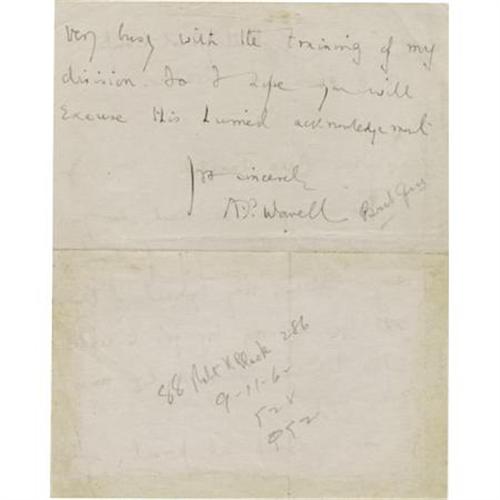 very busy with the training of my
division. So I hope you will
excuse this hurried acknowledgement
Yrs sincerely
A.P. Wavell
88 Robt K Black 286
9-11-62
528